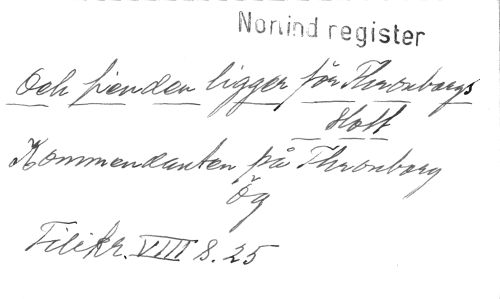 Norlind register
Och fienden ligger för Thronborgs
slott
Kommendanten på Thronborg
Ög
Filikr. VIII S. 25